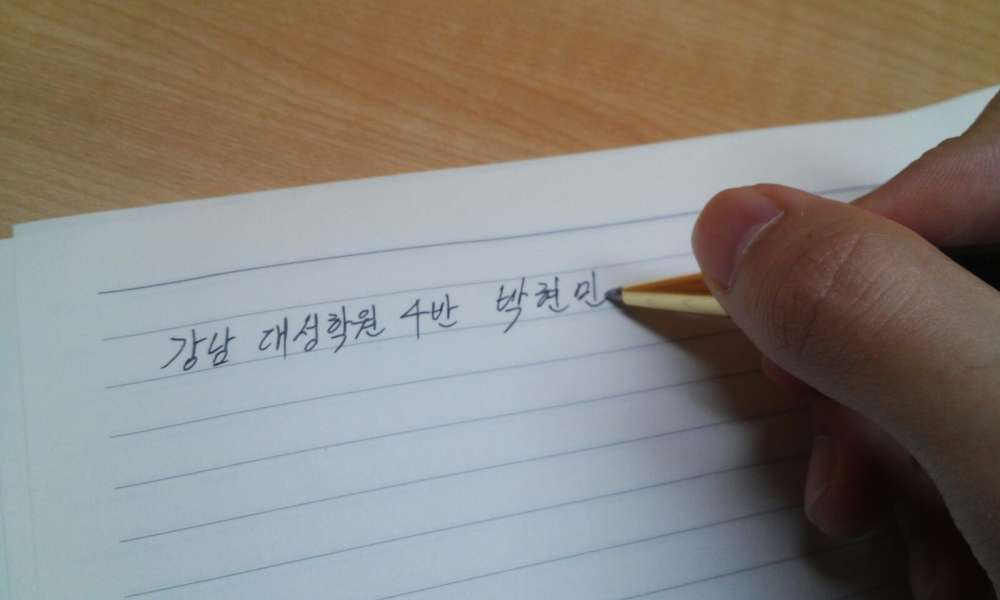 강남 대성학원 4반 박현민